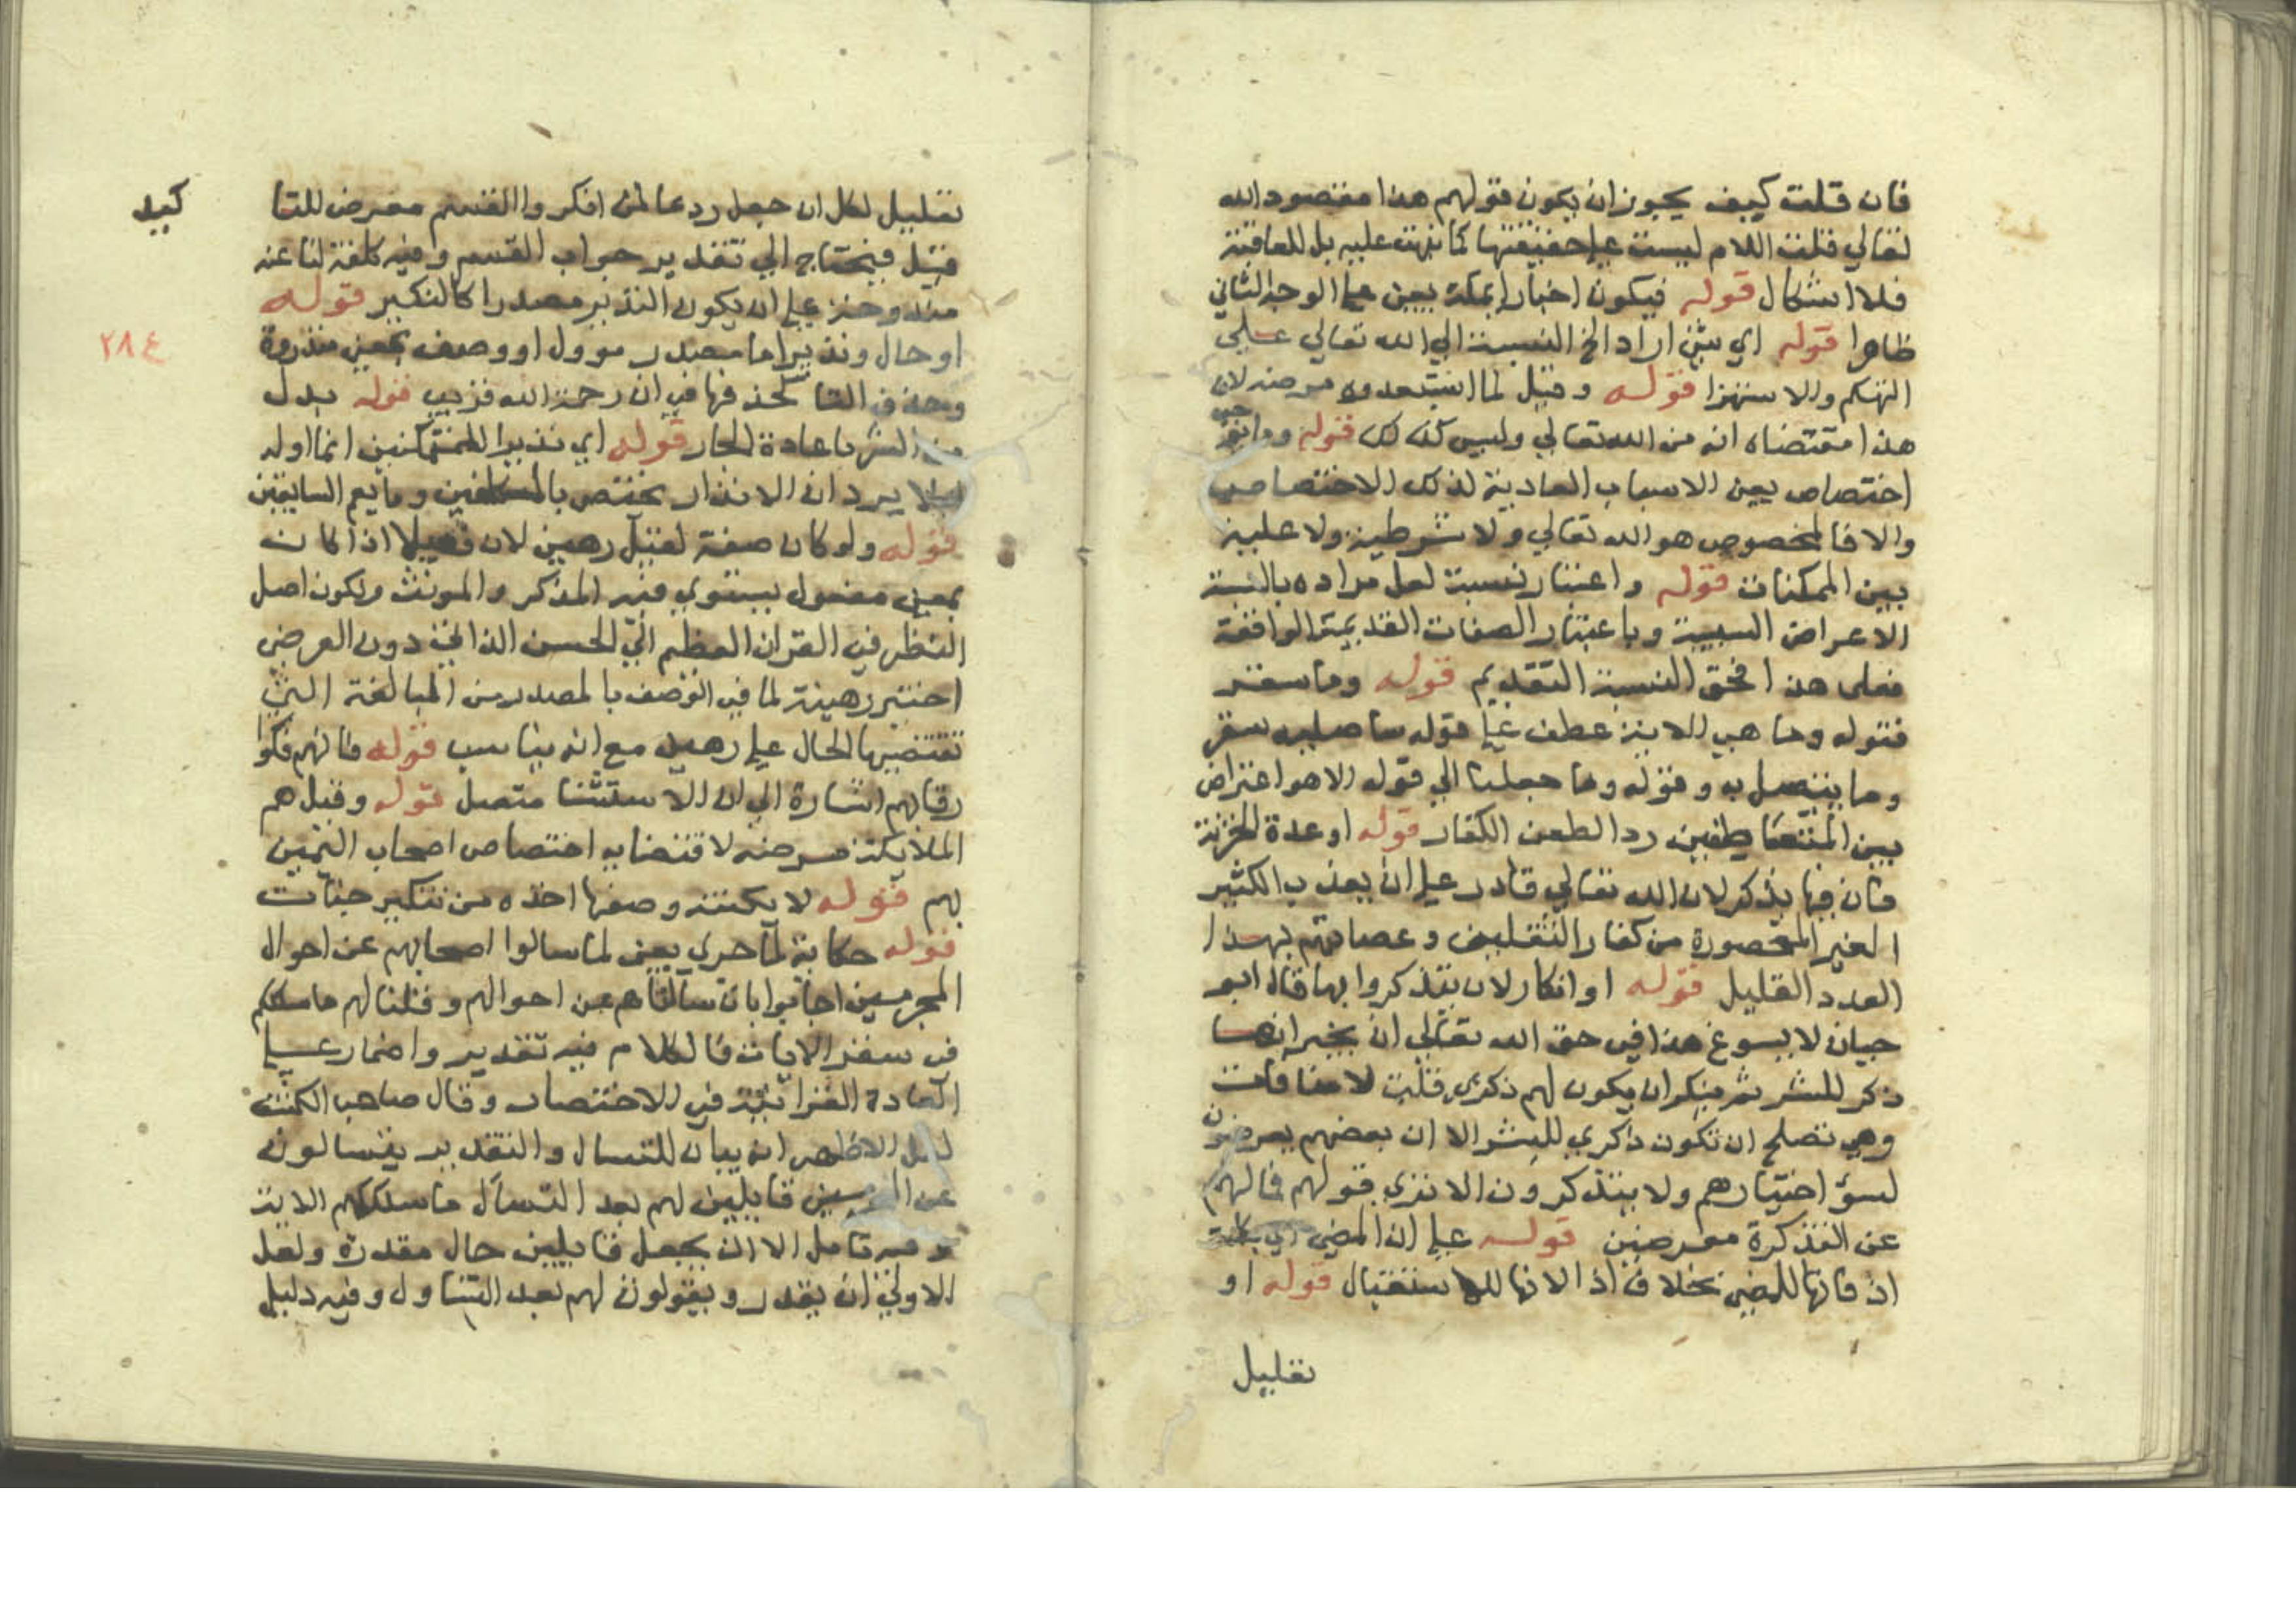 فان قلت كيف يجوز ان يكون قولهم هذا مقصود الله
تعالي قلت اللام ليست علي حقيقتها كما نبهت عليه بل للعاقبة
فلا اشكال قوله فيكون اخبارا بمكة يعني علي الوجه الثاني
ظاهرا قوله اي شي اراد الخ النسبة الي الله تعالي علي
التهكم والاستهزا قوله وقيل لما استبعدوه مرضه لان
هذا مقتضاه انه من الله تعالي وليس كذلك قوله وما يوجب
اختصاص يعين الاسباب العادية لذلك الاختصاص
والا فالمخصوص هو الله تعالي ولا شرطية ولا علية
بين الممكنات قوله واعتبار نسبة لعل مراده بالنسبة
الاعراض النسبية وباعتبار الصفات القديمة الواقعة
فعلي هذا فحق النسبة التقديم قوله وما سقر
فقوله وما هي الاية عطف علي قوله ساصليه سقر
وما يتصل به وقوله وما جعلنا الي قوله الا هو اعتراض
بين المتعاطفين ردا لطعن الكفار قوله او عدة الخزنة
فان فيها يذكر لان الله تعالي قادر علي ان يعذب الكثير
الغير المحصورة من كفار الثقلين وعصاتهم بهذا
العدد القليل قوله او انكار لان يتذكروا بها قال ابو
حيان لا يسوغ هذا في حق الله تعالي ان يخبر انها
ذكر للبشر ثم ينكر ان يكون لهم ذكري قلت لا منافات
وهي تصلح ان تكون ذكري للبشر الا ان بعضهم يعرضون
لسؤ اختيارهم ولا يتذكرون الا تري قولهم فما لهم
عن التذكرة معرضين قوله علي ان المضي
اذ فانها للمضي بخلاف اذا لانها للاستقبال قوله او
تقليل
تقليل لكل ان جعل ردعا لمن افكر واالقسم معرض للتا
كيد
قيل فيحتاج الي تقدير جواب القسم وفيه كلفة لنا عنه
مندوحة علي ان يكون النذير مصدرا كالنكير قوله
او حال ونذيرا ما مصدر موول او وصف بمعني منذرة
٢٨٤
وحذف التا كحذفها في ان رحمة الله قريب قوله بدل
من البشر باعادة الجار قوله اي نذيرا للمتمكنين انما اوله
ليلا يرد ان الانذار يختص بالمكلفين وما يعم السابقين
قوله ولو كان صفة لقيل رهين لان فعيلا اذا كان
بمعني مفعول يستوي فيه المذكر والمونث ولكون اصل
النظر في القران العظيم الي الحسن الذاتي دون العرضي
اختير رهينة لما في الوصف بالمصدر من المبالغة التي
تقتضيها الحال علي رهين مع انه يناسب قوله فانهم فكوا
رقابهم اشارة الي ان الاستثنا متصل قوله وقيل هم
الملايكة مرضه لاقتضايه اختصاص اصحاب اليمين
بهم قوله لا يكتنه وصفها اخذه من تنكير جنات
قوله حكاية لما جري يعني لما سالوا اصحابهم عن احوال
المجرمين اجابوا بانا سالناهم عن احوالهم وقلنا لهم ما سلككم
في سقر الايات فالكلام فيه تقدير واضمار علي
العادة القرانية في الاختصار وقال صاحب الكشف
لعل الاظهر انه بيان للتسال والتقدير يتسالون
عن المجرمين قايلين لهم بعد التسال ما سلككم الاية
وفيه تامل الا ان يجعل قايلين حال مقدرة ولعل
الاولي ان يقدر ويقولون لهم بعد التساول وفيه دليل